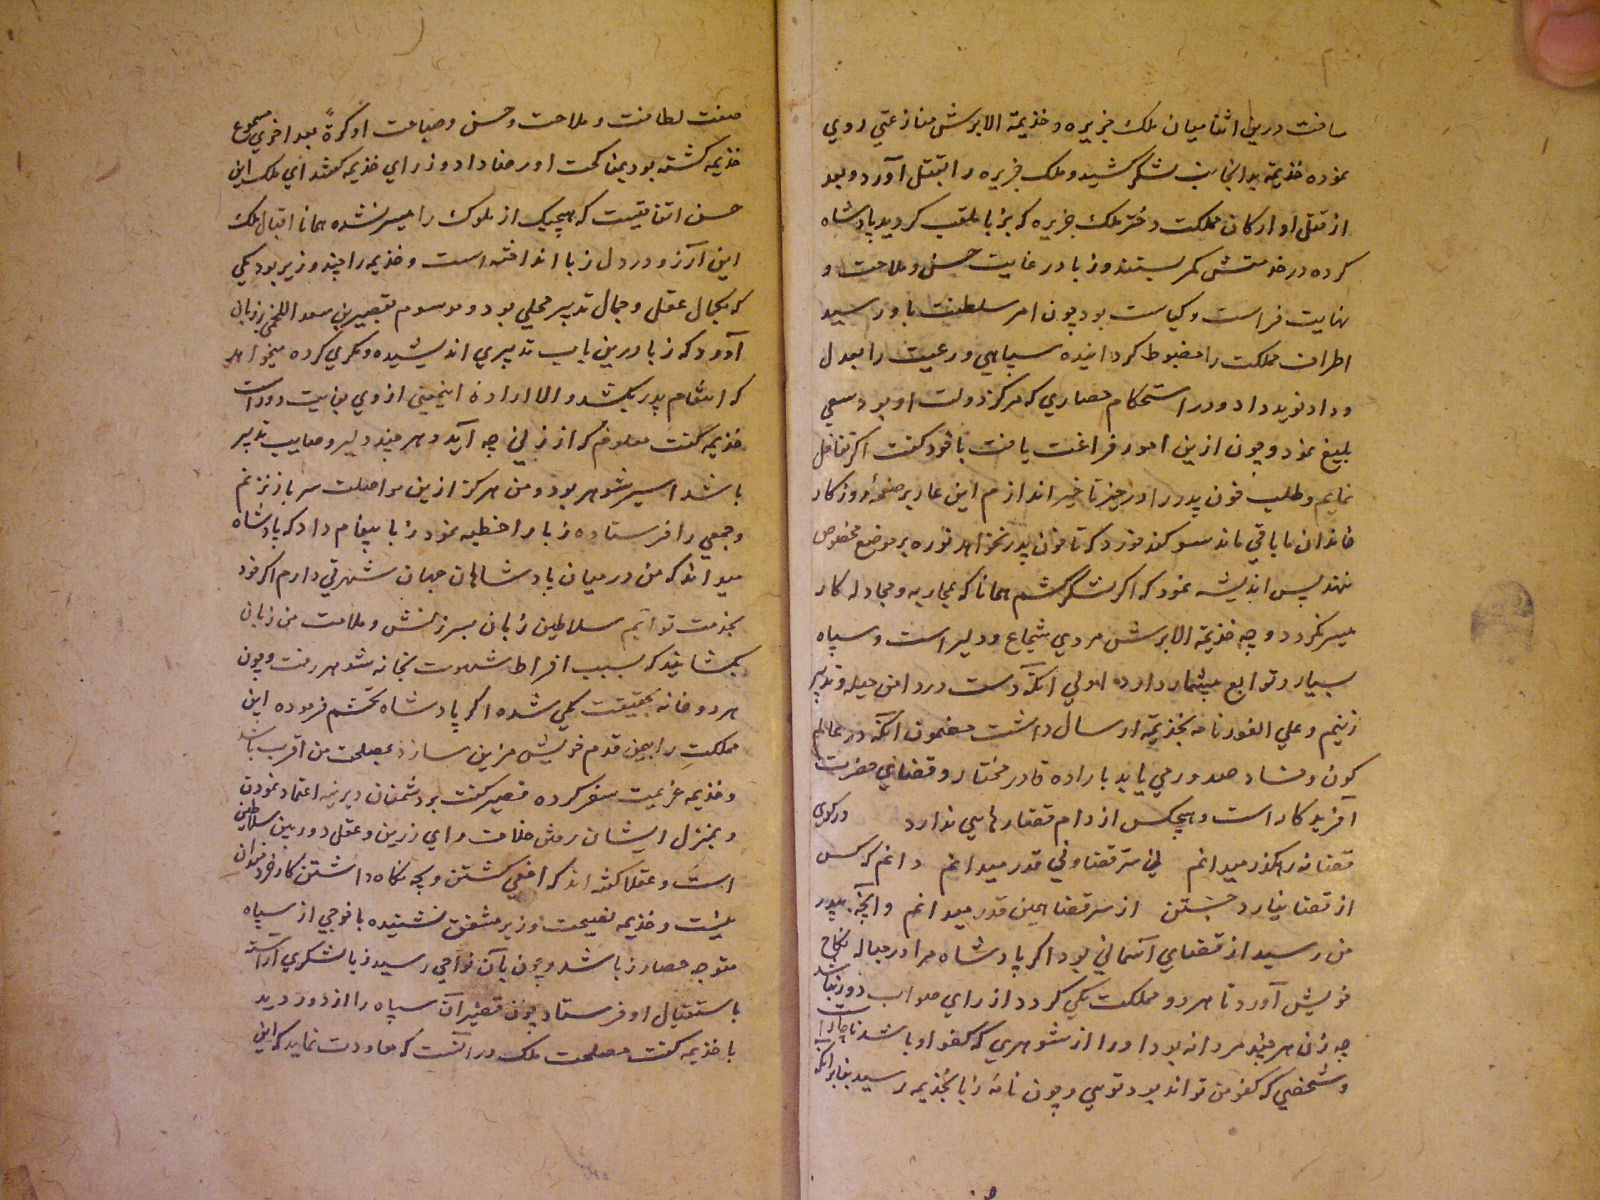 ساخت درین اثنا میان ملک جزیره و خذیمة الابرش منازعتی روی
نموده خذیمة بدانجانب لشکر کشید و ملک جزیره را بقتل آورد و بعد
از قتل او ارکان مملکت دختر ملک جزیره که بزبا ملقب کردید پادشاه
کرده در خدمتش کمر بستند و زبا در غایت حسن و ملاحت و
نهایت فراست و کیاست بود چون امر سلطنت باو رسید
اطراف مملکت را مضبوط کردانیده سپاهی و رعیت را بعدل
و داد نوید داد و در استحکام حصاری که مرکز دولت او بود سعی
بلیغ نمود و چون ازین امور فراغت یافت با خود کفت اکر تغافل
نمایم و طلب خون پدر را در حیز تاخیر اندازم این عار بر صفحهٔ روزکار
خاندان ما باقی ماند سوکند خورد که تا خون پدر نخواهد نوره بر موضع مخصوص
ننهد پس اندیشه نمود که اکر لشکر کشم همانا که بمحاربه و مجادله کار
میسر نکردد و چه خذیمة الابرش مردی شجاع و دلیر است و سپاه
بسیار و توابع بیشمار دارد اولی آنکه دست در دامن حیله و تدبیر
زنیم و علی الفور نامه بخذیمة ارسال داشت مضمون آنکه در عالم
کون و فساد صدور می یابد باراده قادر مختار و قضای حضرت
آفریدکار است و هیچکس از دام قضا رهایی ندارد در کوی
قضا نه رهکذر میدانم نی سرّ قضا و نی قدر میدانم دانم که کس
از قضا نیارد جستن از سر قضا همین قدر میدانم و آنچه بپدر
من رسید از قضای آسمانی بود اکر پادشاه مرا در حباله نکاح
خویش آورد تا هر دو مملکت یکی کردد از رای صواب دور نباشد
چه زن هر چند مردانه بود او را از شوهری که کفو او باشد ناچار است
و شخصی که کفو من تواند بود تویی و چون نامهٔ زبا بخذیمه رسید بنابر آنکه
صفت لطافت و ملاحت و حسن و صباحت او کرةً بعد اخری مسموع
خذیمه کشته بود بمناکحت او رضا داد و زرای خذیمه کفتند ای ملک این
حسن اتفاقیست که هیچیک از ملوک را میسر نشده همانا اقبال ملک
این آرزو در دل زبا انداخته است و خذیمه را چند وزیر بود یکی
که بکمال عقل و جمال تدبیر محلی بود و موسوم بقصیر بن سعد اللخمی بر زبان
آورد که زبا درین باب تدبیری اندیشیده و مکری کرده میخواهد
که انتقام پدر بکشد و الا اراده اینمعنی از وی بغایت دور است
خذیمه کفت معلوم که از زنی چه آید و هر چند دلیر و صایب تدبیر
باشد اسیر شوهر بود و من هرکز ازین مواصلت سر باز نزنم
و جمعی را فرستاده زبا را خطبه نمود زبا پیغام داد که پادشاه
میداند که من در میان پادشاهان جهان شهرتی دارم اکر خود
بخدمت تو آیم سلاطین زبان سرزنش و ملامت من زبان
بکشایند که بسبب افراط شهوت بخانه شوهر رفت و چون
هر دو خانه بحقیقت یکی شده اکر پادشاه تجشم فرموده این
مملکت را بیمن قدم خویش مزین سازد بمصلحت من اقرب باشد
و خذیمه عزیمت سفر کرده قصیر کفت بر دشمنان دیرینه اعتماد نمودن
و بمنزل ایشان رفتن خلاف رای زرین و عقل دوربین سلاطین
است و عقلا کفته اند که افعی کشتن و بچه نکاه داشتن کار خردمندان
نیست و خذیمه نصیحت وزیر مشفق نشنیده با فوجی از سپاه
متوجه حصار زبا شد و چون بآن نواحی رسید زبا لشکری آراسته
باستقبال او فرستاد چون قصیر آن سپاه را از دور دید
با خذیمه کفت مصلحت ملک در آنست که معاودت نماید که این